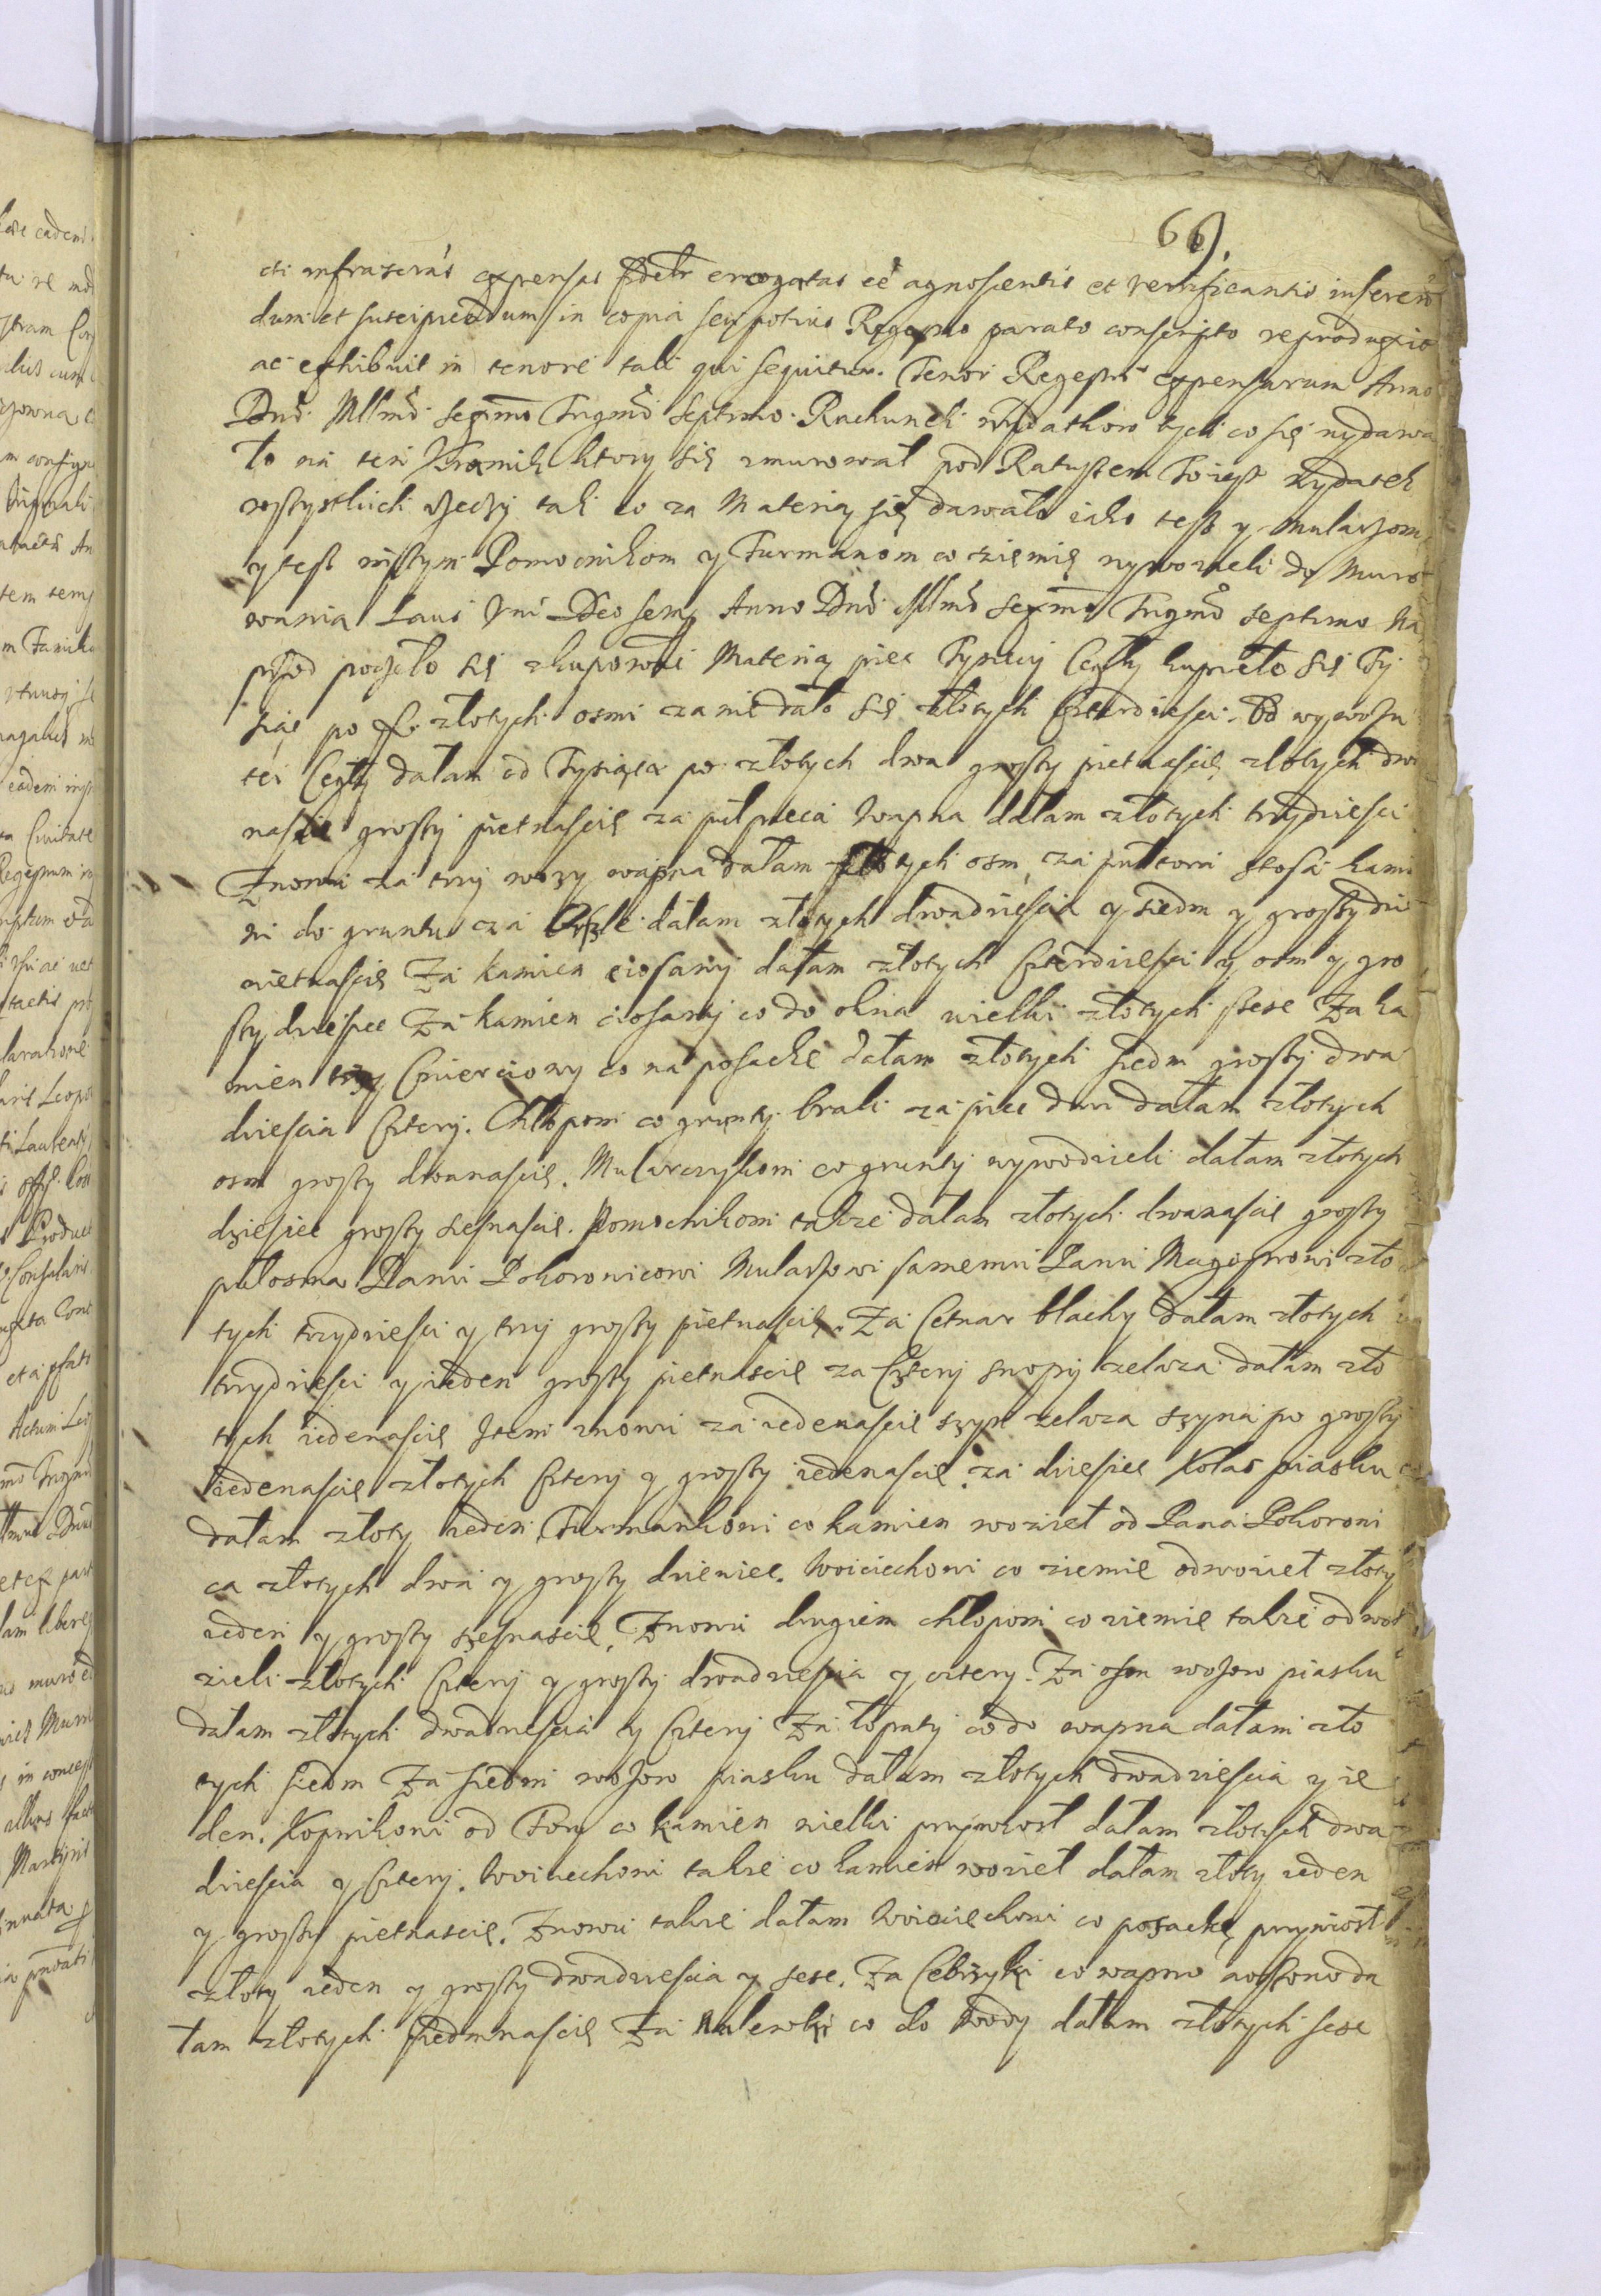 69.
cti infrascrās expensas fidetr erogatas eē agnoscentis et verificantis inseren
dum et suscipiendum in copia seu potius Regestro parato conscripto reproduxit
ac exhibuit in tenore tali qui sequitur. Tenor Regestri expensarum Anno
Dnī Mllmō sexmō Trigmō septimo. Rachunek wydatkow tych co się wydawa
ło na ten Kramik ktory się zmurował pod Ratuszem To iest wydatek
wszystkich rzeczy tak co za Materią się dawało iako tesz y Mularzom
y tesz inszym Pomocnikom y Furmanom co ziemię wywozieli do Muro
wania Laus Uni Deo semp Anno Dnī Mllmō sexmō Trigmō septimo Na
przod poczęło się skupować Materią pięc Tysięcy Cegły kupieło się Ty
siąc po fl. złotych osmi za nię dało się złotych czterdziesci. Od wywozu
tei Cegły dałam od Tysiąca po złotych dwa groszy pietnascie złotych dwa
nascie groszy pietnascie za puł pieca Wapna dałam złotych trzydziesci
Znowu za trzy wozy wapna dałam złotych osm, za pułtora stosa kami
ni do gruntu dałam złotych dwadziescia y siedm y groszy dzie
wietnascie Za kamien ciosany dałam złotych czterdziesci y osm y gro
szy dziesiec Za kamien ciosany co do okna wielki złotych szesc Za ka
mien trzy Cwierciowy co na posackę dałam złotych siedm groszy dwa
dziescia cztery. Chłopom co grunty brali za piec dni dałam złotych
osm groszy dwanascie. Mularczykom co grunty wywodzieli dałam złotych
dziesiec groszy szesnascie. Pomocnikom także dałam złotych dwanascie groszy
pułosma Panu Pokorowicowi Mularzowi samemu Panu Magistrowi zło
tych trzydziesci y trzy groszy pietnascie. Za Cetnar blachy dałam złotych
trzydziesci y ieden groszy pietnascie za Cztery snopy zelaza dałam zło
tych iedenascie Item znowu za iedenascie szyn zelaza szyna po groszy
iedenascie złotych cztery y groszy iedenascie. za dziesiec Kolas piasku
dałam złoty ieden Furmankowi co kamien woził od Pana Pokorowi
ca złotych dwa y groszy dziewiec. Woiciechowi co ziemie odwoził złoty
ieden y groszy szesnascie, Znowu drugiem chłopom co ziemie także odwo
zieli złotych cztery y groszy dwadziescia y cztery. Za osm wozow piasku
dałam złotych dwadziescia y cztery Za łopaty co do wapna dałam zło
tych siedm Za siedm wozow piasku dałam złotych dwadziescia y ie
den. Kopnikowi od Fory co kamien wielki przywiosł dałam złotych dwa
dziescia y cztery. Woiciechowi także co kamien woził dałam złoty ieden
y groszy pietnascie. Znowu także dałam Woiciechowi co posackę przywiosł
złoty ieden y groszy dwadziescia y szesc. Za Cebrzyki co wapno noszono da
łam złotych siedmnascie Za Kulewki co do Wody dałam złotych szesc